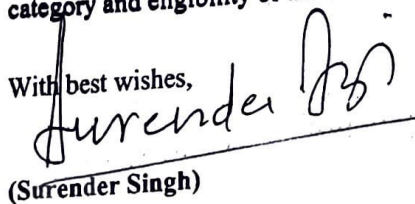 category and
With best wishes,
Surender
(Surender Singh)